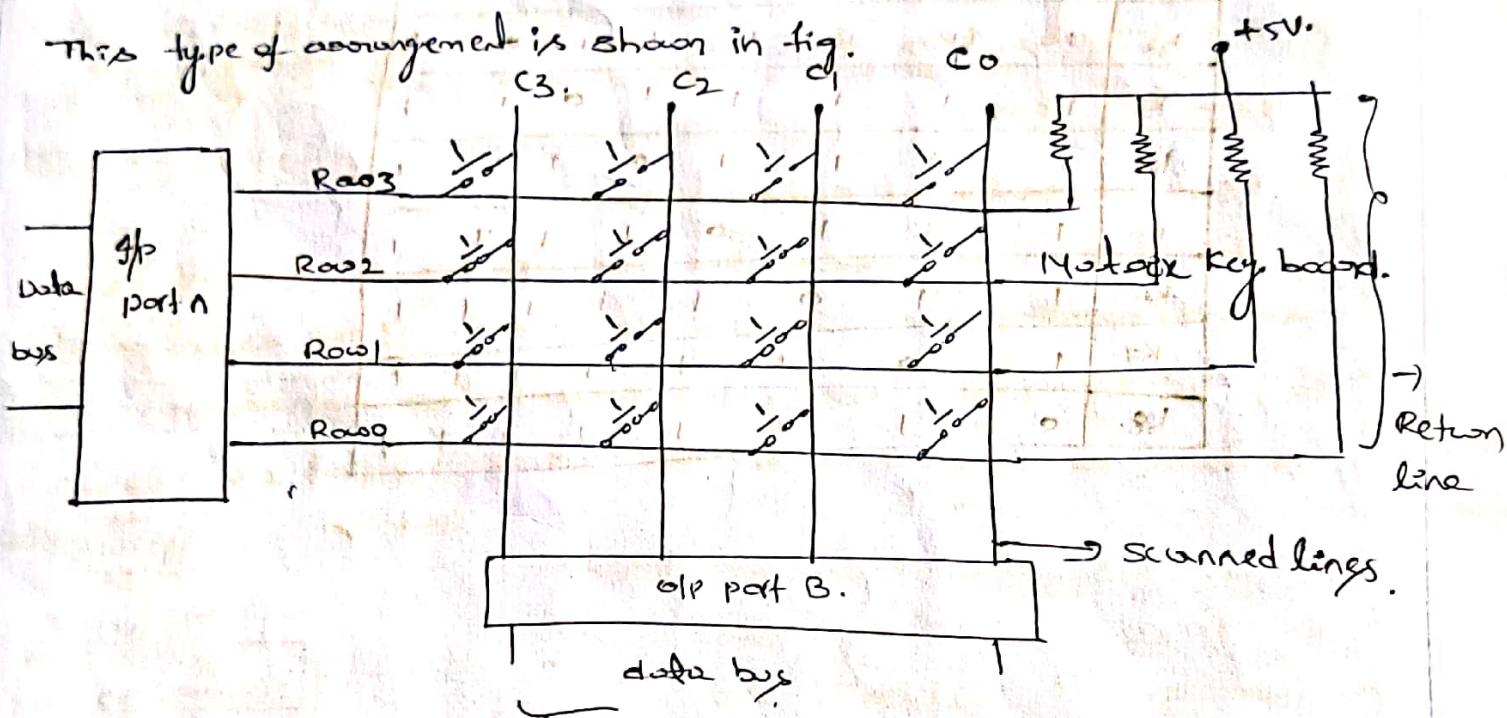 This type of arrangement is shown in fig.
C3.
C2
C1
C0
+5V.
Row3
Row2
Row1
Row0
I/p
port A
Data
bus
Matrix Key board.
→
Return
line
→ scanned lines.
o/p port B.
data bus